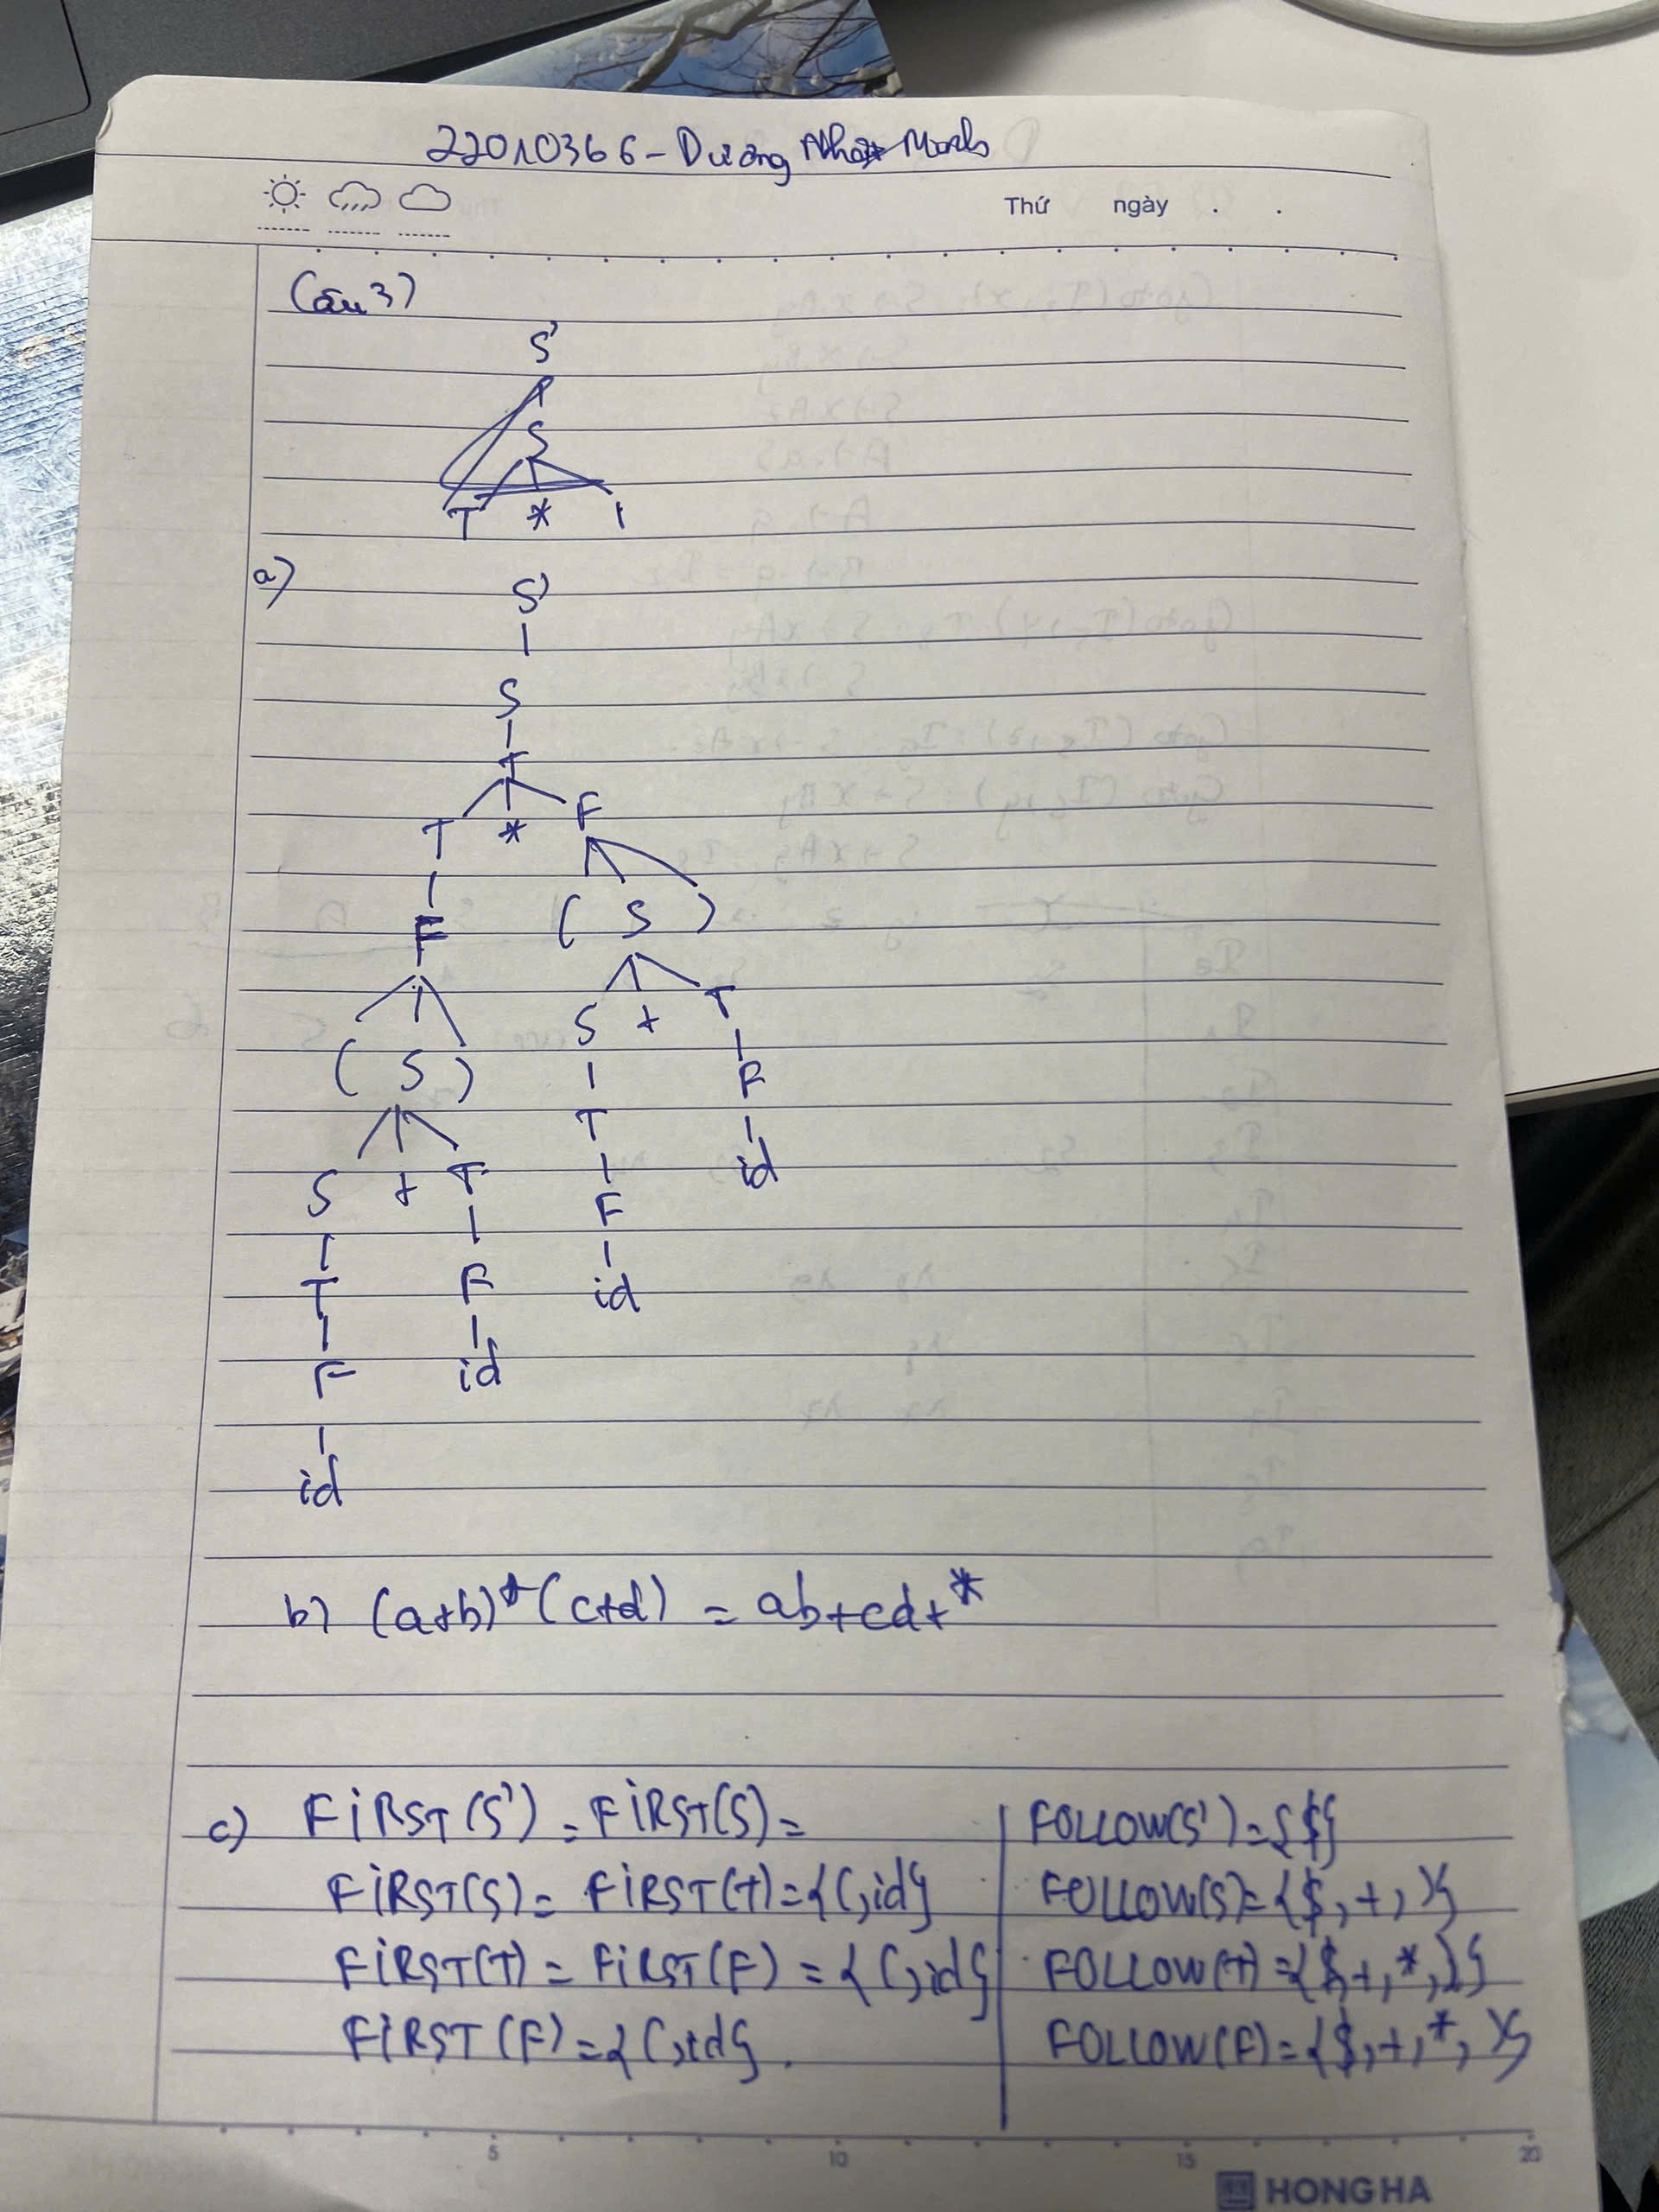 22010366 - Dương Nhật Minh
Thứ ngày . .
Câu 3)
S'
S
T * 1
a)
S'
S
T
T * F
F ( S )
( S ) S + T
S + T T F
T F F id
F id id
id
b) (a+b)*(c+d) = ab+cd+*
c) FiRST(S') = FiRST(S) = FOLLOW(S') = {$}
FiRST(S) = FiRST(T) = {(, id} FOLLOW(S) = {$, +, )}
FiRST(T) = FiRST(F) = {(, id} FOLLOW(T) = {$, +, *, )}
FiRST(F) = {(, id}. FOLLOW(F) = {$, +, *, )}
5 10 15 20
HONG HA